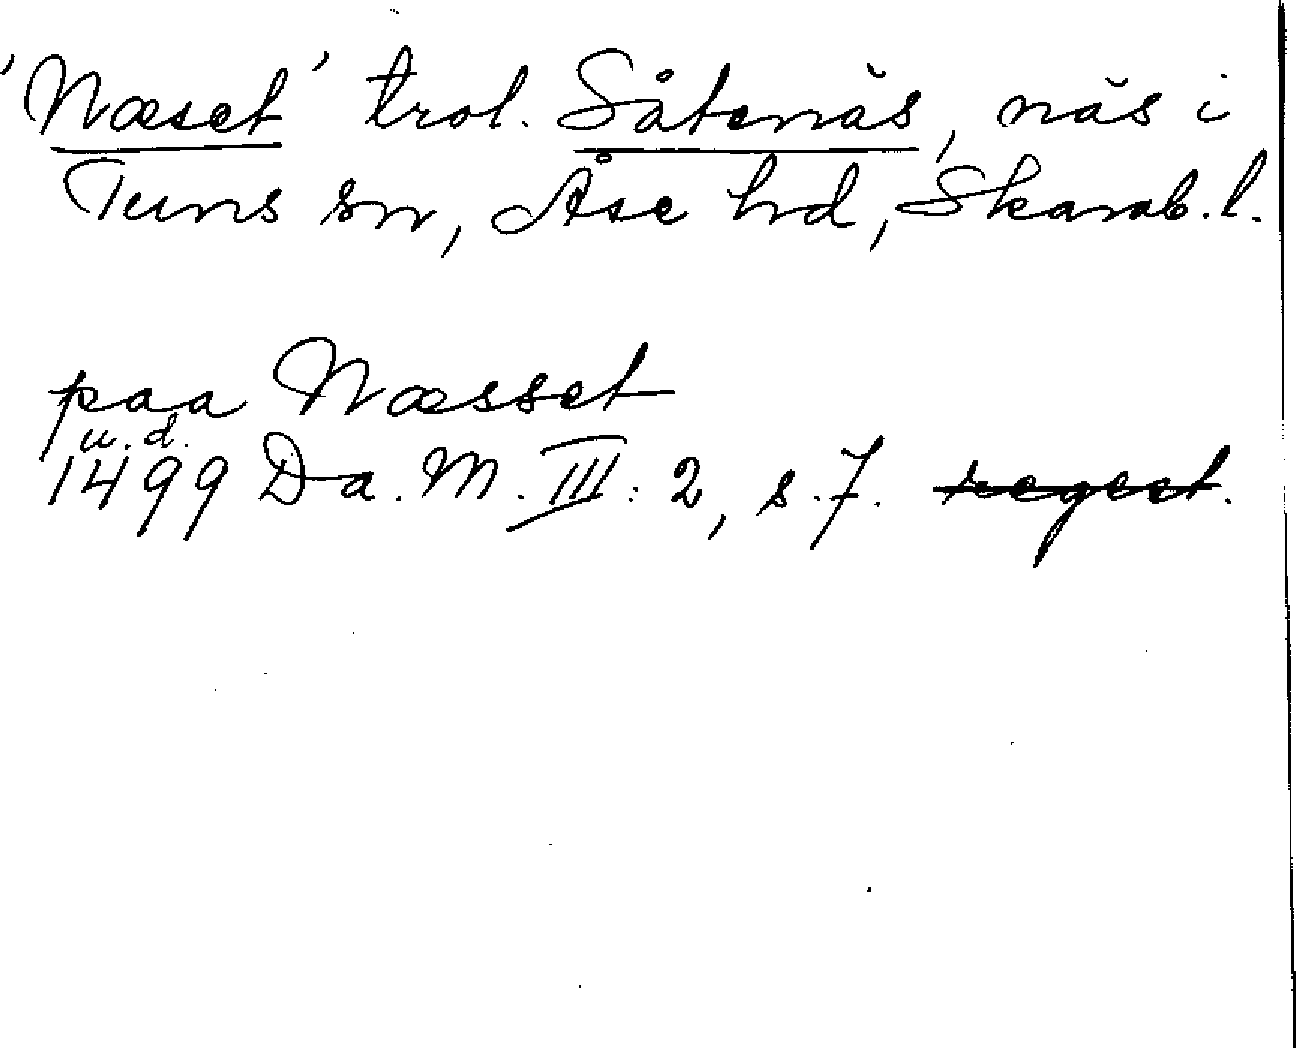 'Næset' trol. Såtenäs, näs i
Tuns sn, Åse hd, Skarab. l.
paa Næsset
u. d.
1499 Da. M. III: 2, s. 7. regest.